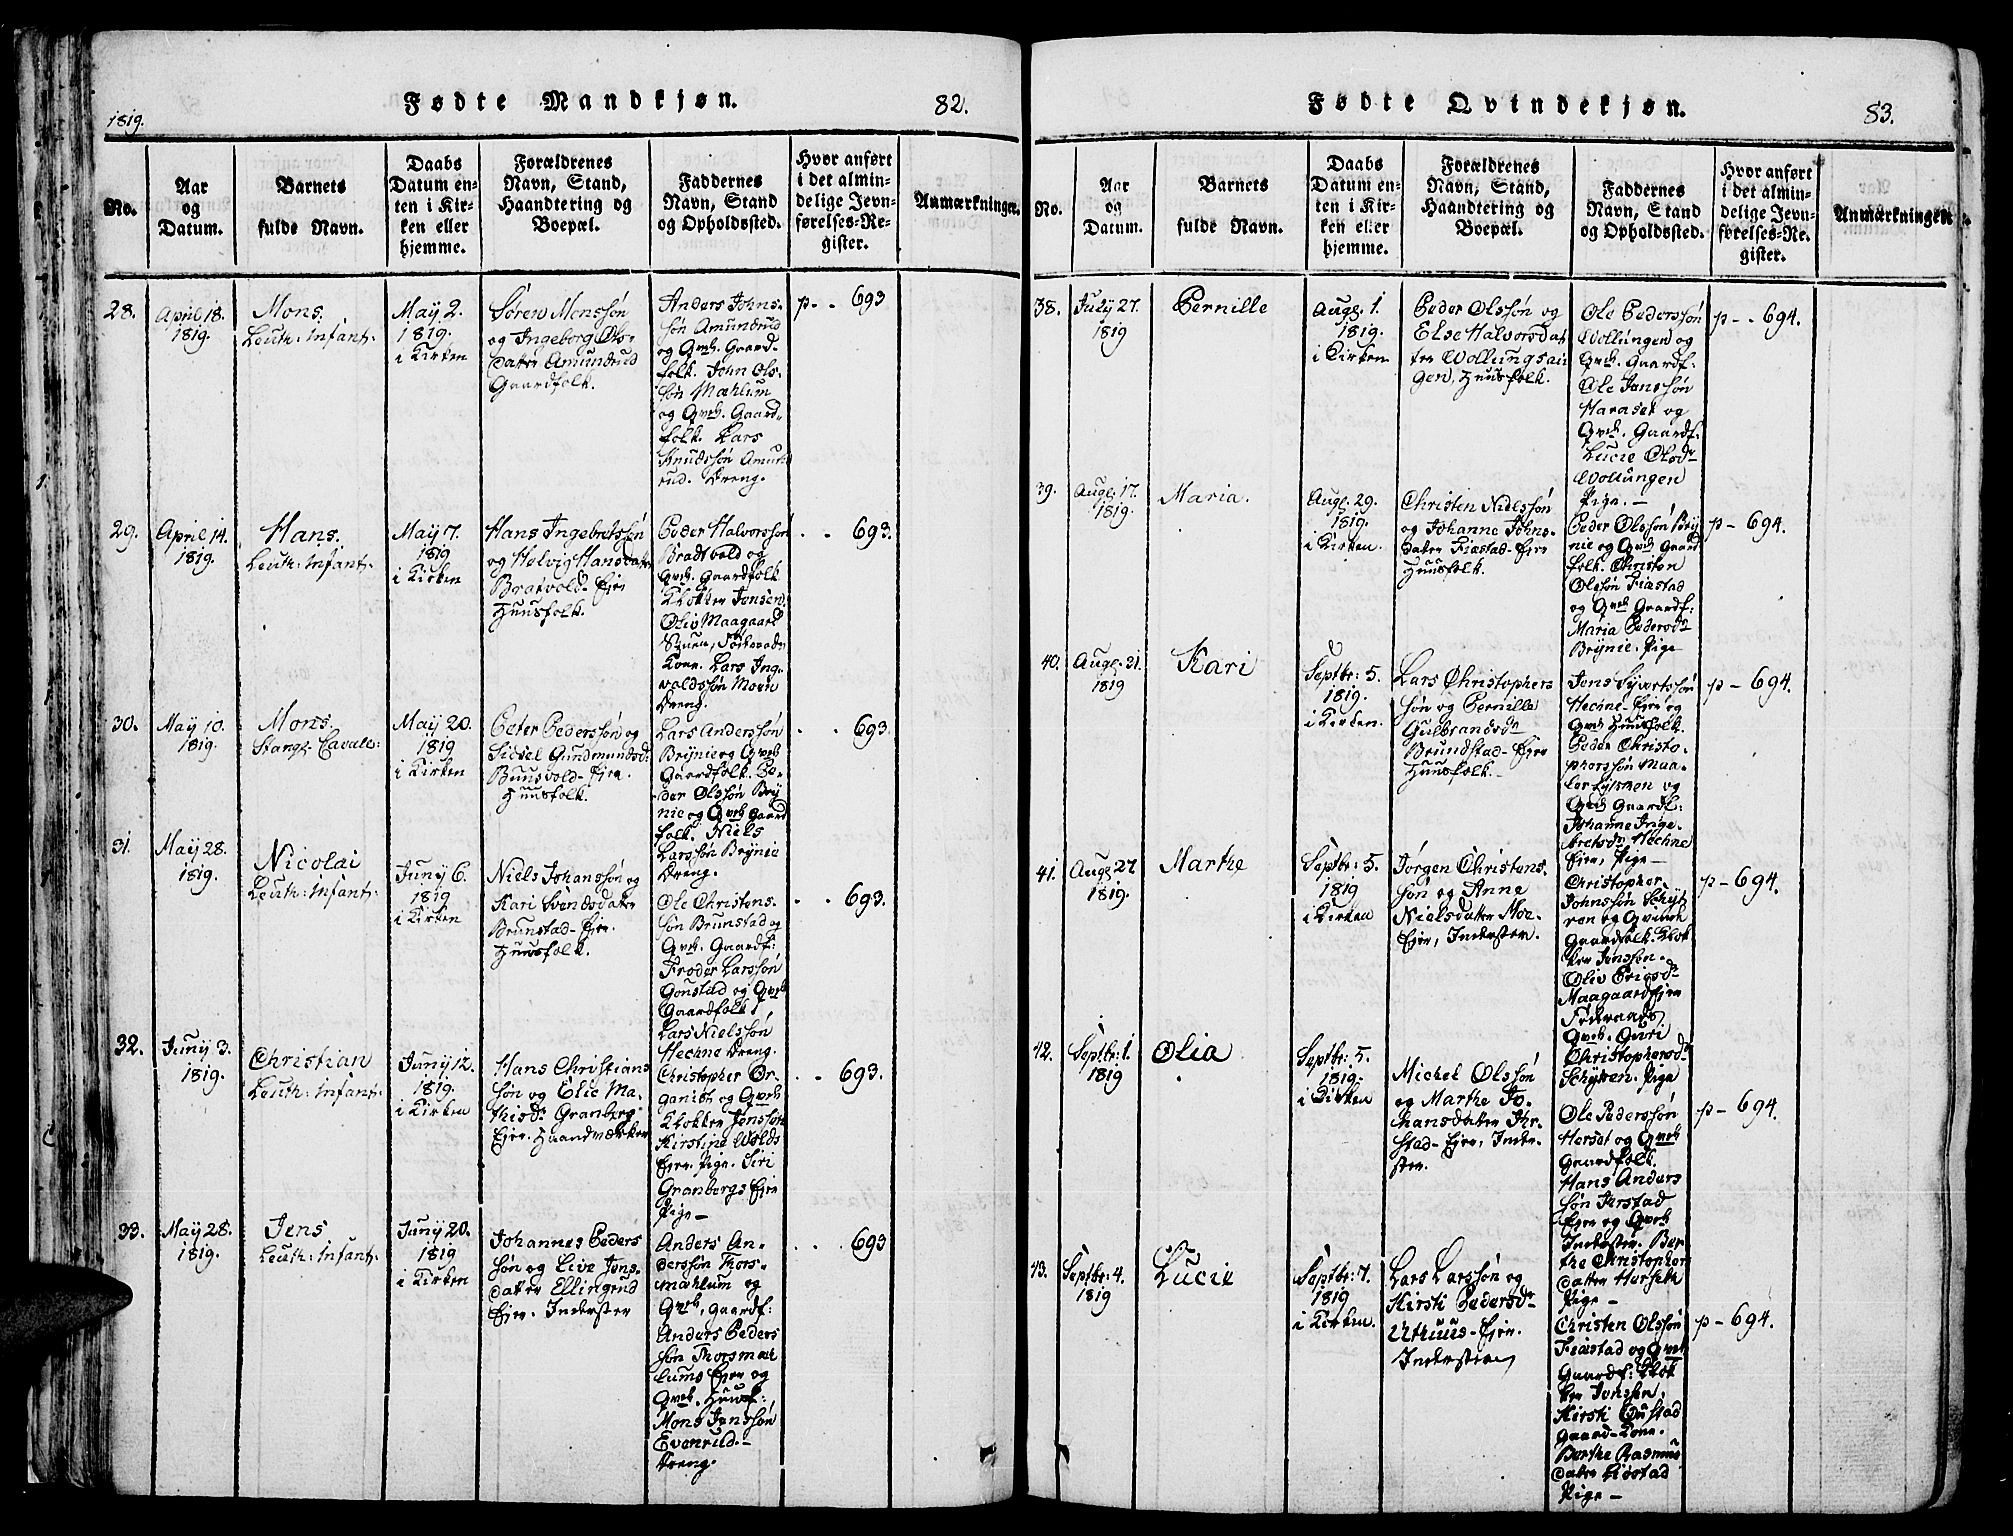 1819.
Fødte Mandkjøn.
82.
No.
Aar
og
Datum.
Barnets
fulde Navn.
Daabs
Datum en-
ten i Kir-
ken eller
hjemme.
Forældrenes
Navn, Stand,
Haandtering og
Boepæl.
Faddernes
Navn, Stand
og Opholdssted.
Hvor anført
i det almin-
delige Jevn-
førelses-Re-
gister.
Anmærkninger.
28.
April 18.
1819.
Mons.
Leuth: Infant:
May 2.
1819.
i Kirken
Søren Monssøn
og Ingeborg Ols-
datter Amundrud
Gaardfolk.
Anders Johns-
søn Amundrud
og Qvh. Gaard-
folk. John Ols-
søn Mæhlum
og Qvh. Gaard-
folk. Lars
Knudssøn Amund
rud. Dreng.
p- - 693
29.
April 14.
1819.
Hans.
Leuth: Infant:
May 7.
1819
i Kirken
Hans Ingebretssøn
og Helvig Hansdatter
Bratvold- Eje
Huusfolk.
Peder Halvorssøn
Bradtvold og
Qvh. Gaardfolk
Klokker Jonsen.
Oliv Maagaard
Enken, Føderads-
Kone. Lars Ing-
valdssøn Moen
Dreng.
- - 693.
30.
May 10.
1819.
Mons.
Stangs Cavale:
May 20.
1819
i Kirken
Peter Pederssøn og
Sidsel Gundmundsd:
Buusvold- Ejer.
Huusfolk.
Lars Anderssøn
Brynie og Qvh
Gaardfolk. Pe-
der Olssøn Bry
nie og Qvh Gaard
folk. Niels
Larssøn Brynie
Dreng.
- - 693.
31.
May 28.
1819.
Nicolai
Leuth: Infant:
Juny 6.
1819
i Kirken
Niels Johanssøn og
Kari Svendsdatter
Brunstad- Ejer.
Huusfolk.
Ole Christens.
søn Brunstad og
Qvh. Gaardf:
Froder Larssøn
Gonstad og Qvh
Gaardfolk
Lars Nielssøn
Hechne Dreng.
- - 693.
32.
Juny 3.
1819.
Christian
Leuth: Infant:
Juny 12.
1819.
i Kirken
Hans Christians
søn og Elie Ma-
thisdr Granberg
Ejer. Haandværker
Christopher Or-
ganist og Qvh
Klokker Jonssøn
Kirstine Wolds
Ejer. Pige. Siri
Granbergs Ejer
Pige-
- - 693.
33.
May 28.
1819.
Jens
Leuth: Infant:
Juny 20.
1819
i Kirken
Johannes Peders
søn og Live Jens-
datter Ellingrud
Ejer. Inderster
Anders An-
derssøn Thors-
mæhlum og
Qvh, Gaardf:
Anders Peders
søn Thorsmæh
lums Ejer og
Qvh. Huusf:
Mons Jenssøn
Evenrud.-
Dreng.
- - 693
Fødte Qvindekjøn.
83.
No.
Aar
og
Datum.
Barnets
fulde Navn.
Daabs
Datum en-
ten i Kir-
ken eller
hjemme.
Forældrenes
Navn, Stand,
Haandtering og
Boepæl.
Faddernes
Navn, Stand
og Opholdssted.
Hvor anført
i det almin-
delige Jevn-
førelses-Re-
gister.
Anmærkninger
38.
July 27.
1819
Pernille
Aug. 1.
1819.
i Kirken
Peder Olssøn og
Else Halvorsdat
ter Wollungsæi
gen, Huusfolk.
Ole Pederssøn
Wollungen og
Qvh. Gaardf:
Ole Jonssøn
Haraset og
Qvh. Gaardf.
Lucie Olsdr
Wollungen
Pige.-
p- - 694.
39.
Aug. 17.
1819.
Maria.
Aug. 29.
1819.
i Kirken.
Christen Nielssøn
og Johanne Johns-
datter Fiæstad- Ejer
Huusfolk.
Peder Olssøn Bry
nie og Qvh Gaard
folk. Christen
Olssøn Fiæstad
og Qvh Gaardf:
Maria Pedersdr
Brynie. Pige
p- 694.
40.
Aug. 21.
1819
Kari
Septbr: 5.
1819.
i Kirken.
Lars Christophers
søn og Pernille
Gulbrandsdr
Brundstad- Ejer
Huusfolk.-
Jens Syvertssøn
Hecne- Ejer og
Qvh Huusfolk.
Peder Christo-
pherssøn Maa-
og
Qvh Gaardf:
Johanne Inge-
bretsdr Hechne
Ejer, Pige-
p- 694.
41.
Aug. 27
1819.
Marthe
Septbr: 5.
1819
i Kirken
Jørgen Christens.
søn og Anne
Nielsdatter Moe-
Ejer, Inderster.
Christopher
Johnssøn Schyt
ten og Qvinde
Gaardfolk. Klok
ker Jonssøn.
Oliv Erigsdr
Maagaardejer
Føderaads
Qvh. Guri
Christophersdr
Schytten. Pige
p- 694.
42.
Septbr: 1.
1819
Olia
Septbr: 5.
1819.
i Kirken
Michel Olssøn
og Marthe Jo-
hansdatter Jer-
stad- Ejer, Inder-
ster.
Ole Pederssøn
Herset og Qvh
Gaardfolk.
Hans Anders
søn Jerstad
Ejer og Qvh
Inderster. Ber
the Christopher
datter Herseth
Pige-
p- 694.
43.
Septbr: 4.
1819
Lucie
Septbr: 7.
1819
i Kirken.
Lars Larssøn og
Kirsti Pedersdr
Uthuus- Ejer.
Inderster
Christen Olssøn
Fiæstad og Qvh
Gaardf: Klok
ker Jonsen,
Kirsti Qustad
Gaard-Kone.
Berthe Rasmus
datter Kiøstad
Pige-
p- 694.